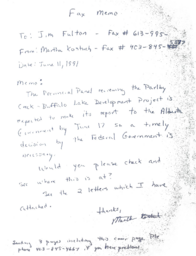 Fax Memo
To: Jim Fulton - Fax # 613-995-
From: Martha Kostuch - Fax # 403-845-
Date: June 11, 1991
Memo:
The Provincial Panel reviewing the Parlby
Creek - Buffalo Lake Development Project is
expected to make its report to the Alberta
Government by June 17 so a timely
decision by the Federal Government is
necessary.
Would you please check and
see where this is at?
See the 2 letters which I have
attached.
Thanks,
Martha Kostuch
Sending 8 pages including this cover page. Pls
phone 403-845-4667 if you have problems.